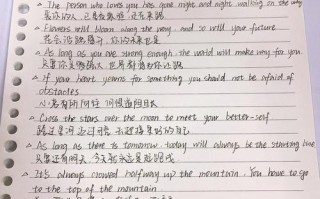 The person who loves you has gone night and night walking on the way
Flowers will bloom along the way, and so will your future
花会沿路盛开，你以后的路也是
As long as you are strong enough, the world will make way for you.
If your heart yearns for something you should not be afraid of
obstacles
心若有所向往 何惧道阻且长
Cross the stars over the moon to meet your better-self
跨过星河迈过月亮 去迎接更好的自己
As long as there is tomorrow, today will always be the starting line
只要还有明天，今天就永远是起跑线
It's always crowded halfway up the mountain, You have to go
to the top of the mountain